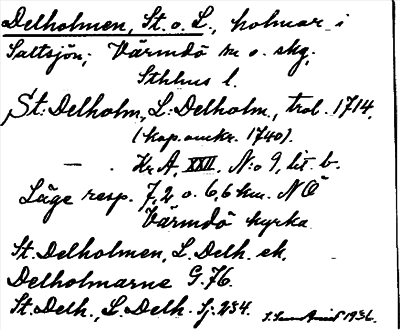 Delholmen, St. o. L., holmar i
Saltsjön; Värmdö sn o. skg,
Sthlms l.
St: Delholm, L: Delholm, trol. 1714,
(kop. omkr. 1740).
— . Kr A, XXII. N:o 9, lit. b.
Läge resp. 7,2 o. 6,6 km. NÖ
Värmdö kyrka
St. Delholmen, L. Delh. ek.
Delholmarne G. 76.
St. Delh., L. Delh. Sj. 234.
1936.